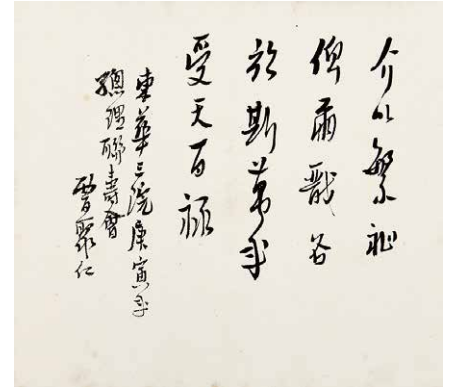 介以繁祉
俾爾戩谷
於斯萬年
受天百祿
東華三院庚寅年
總理聯壽會
曹聚仁